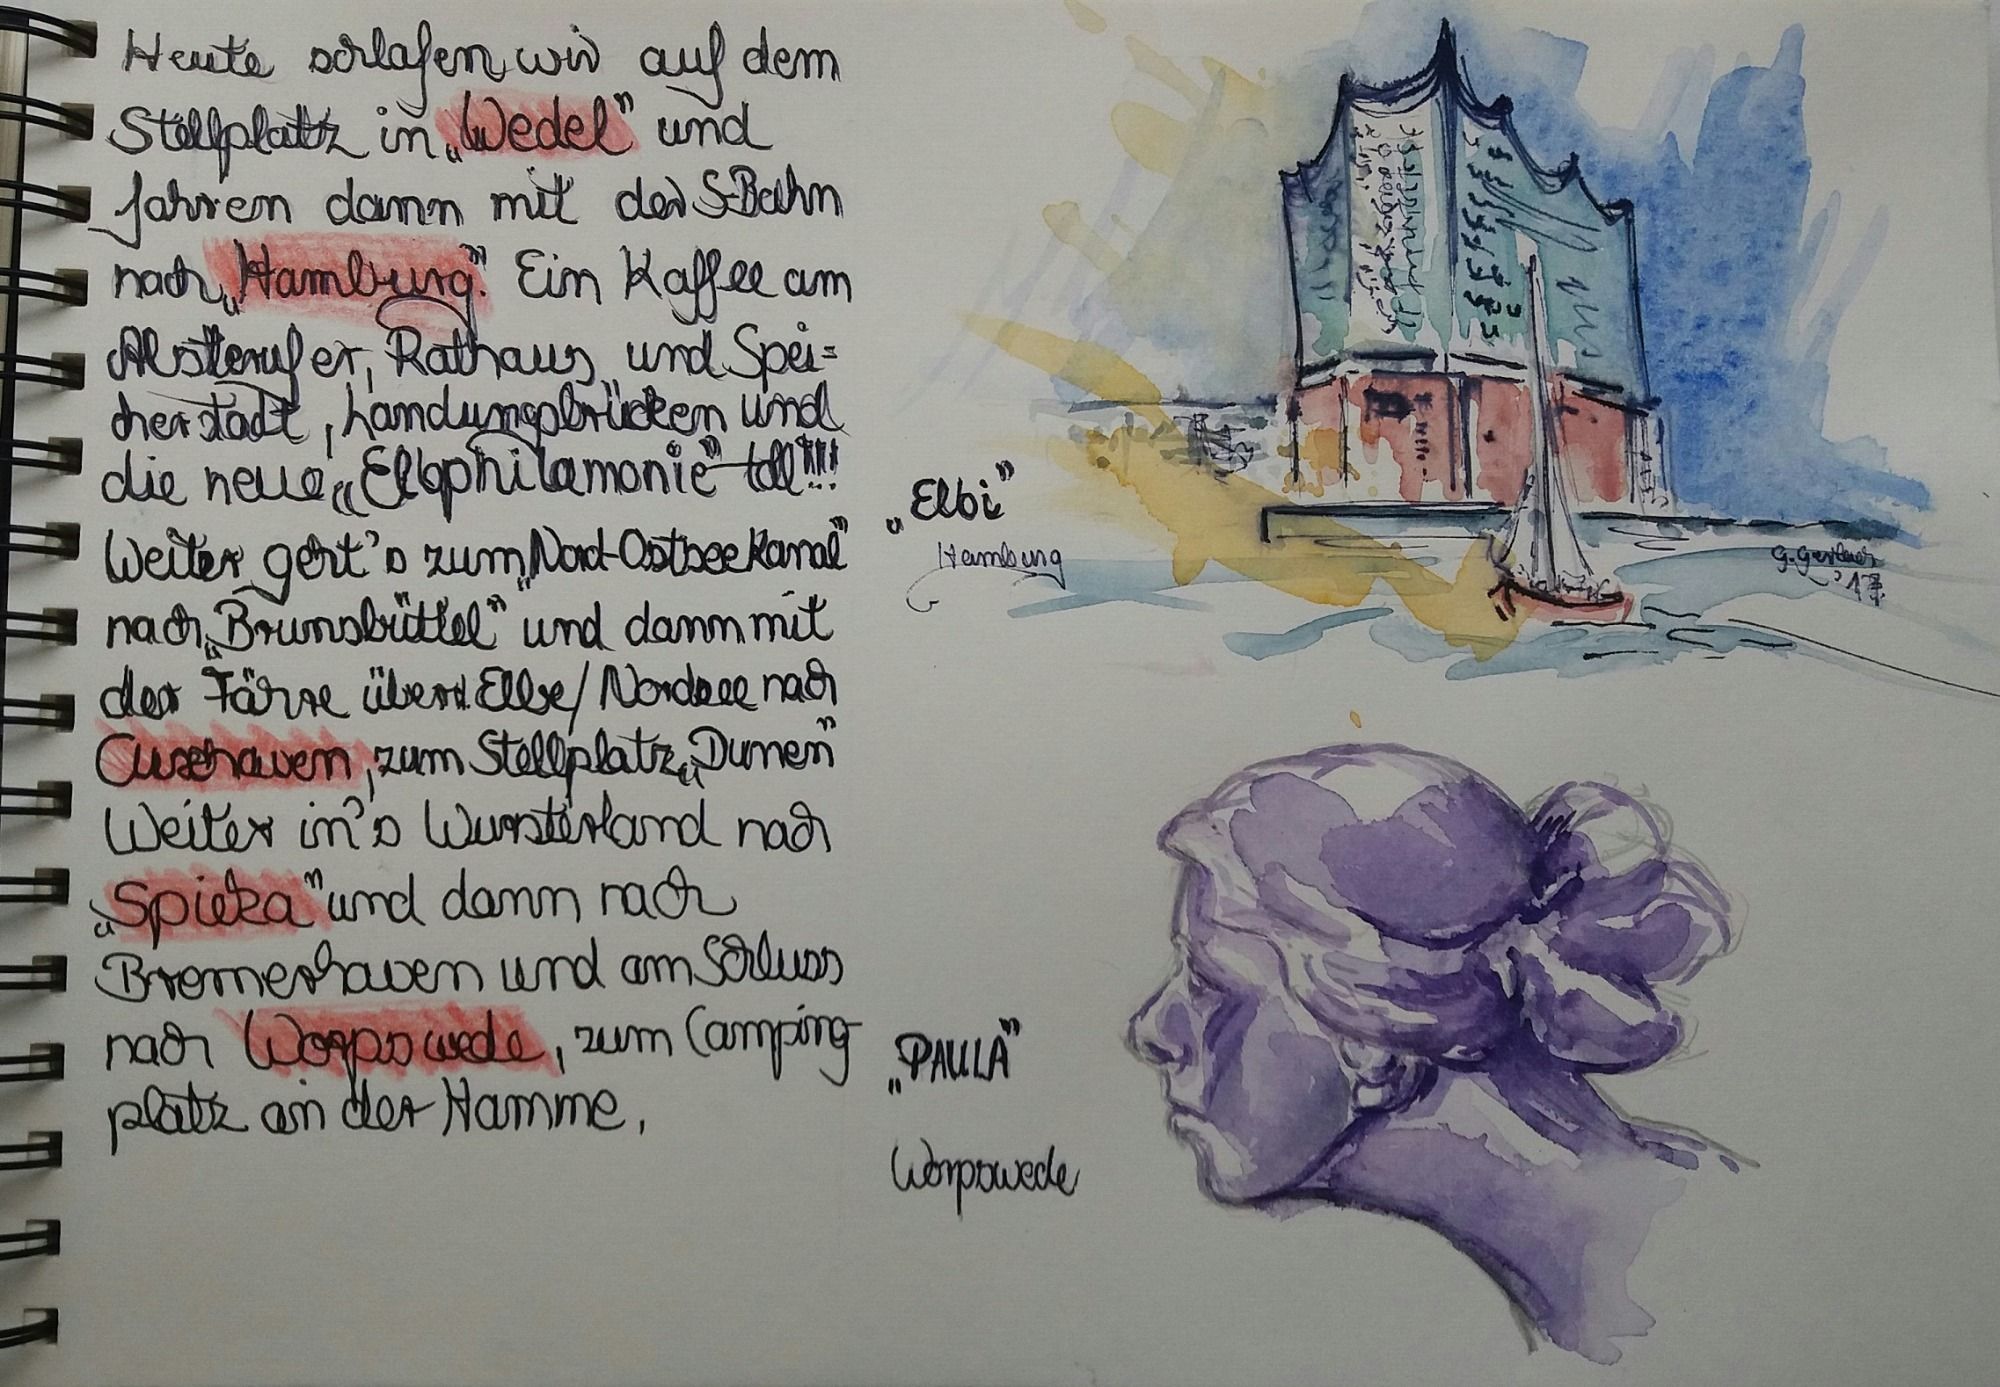 Heute schlafen wir auf dem
Stellplatz in „Wedel" und
fahren dann mit der S-Bahn
nach „Hamburg". Ein Kaffee am
Alsterufer, Rathaus und Spei=
cherstadt, Landungsbrücken und
die neue „Elbphilamonie" toll!!!!
Weiter geht's zum „Nord-Ostseekanal"
nach „Brunsbüttel" und dann mit
der Fähre über d. Elbe/Nordsee nach
Cuxhaven, zum Stellplatz „Dunen"
Weiter in's Wursterland nach
„Spieka" und dann nach
Bremerhaven und am Schluss
nach Worpswede, zum Camping-
platz an der Hamme,
„Elbi"
Hamburg
'17
„PAULA"
Worpswede